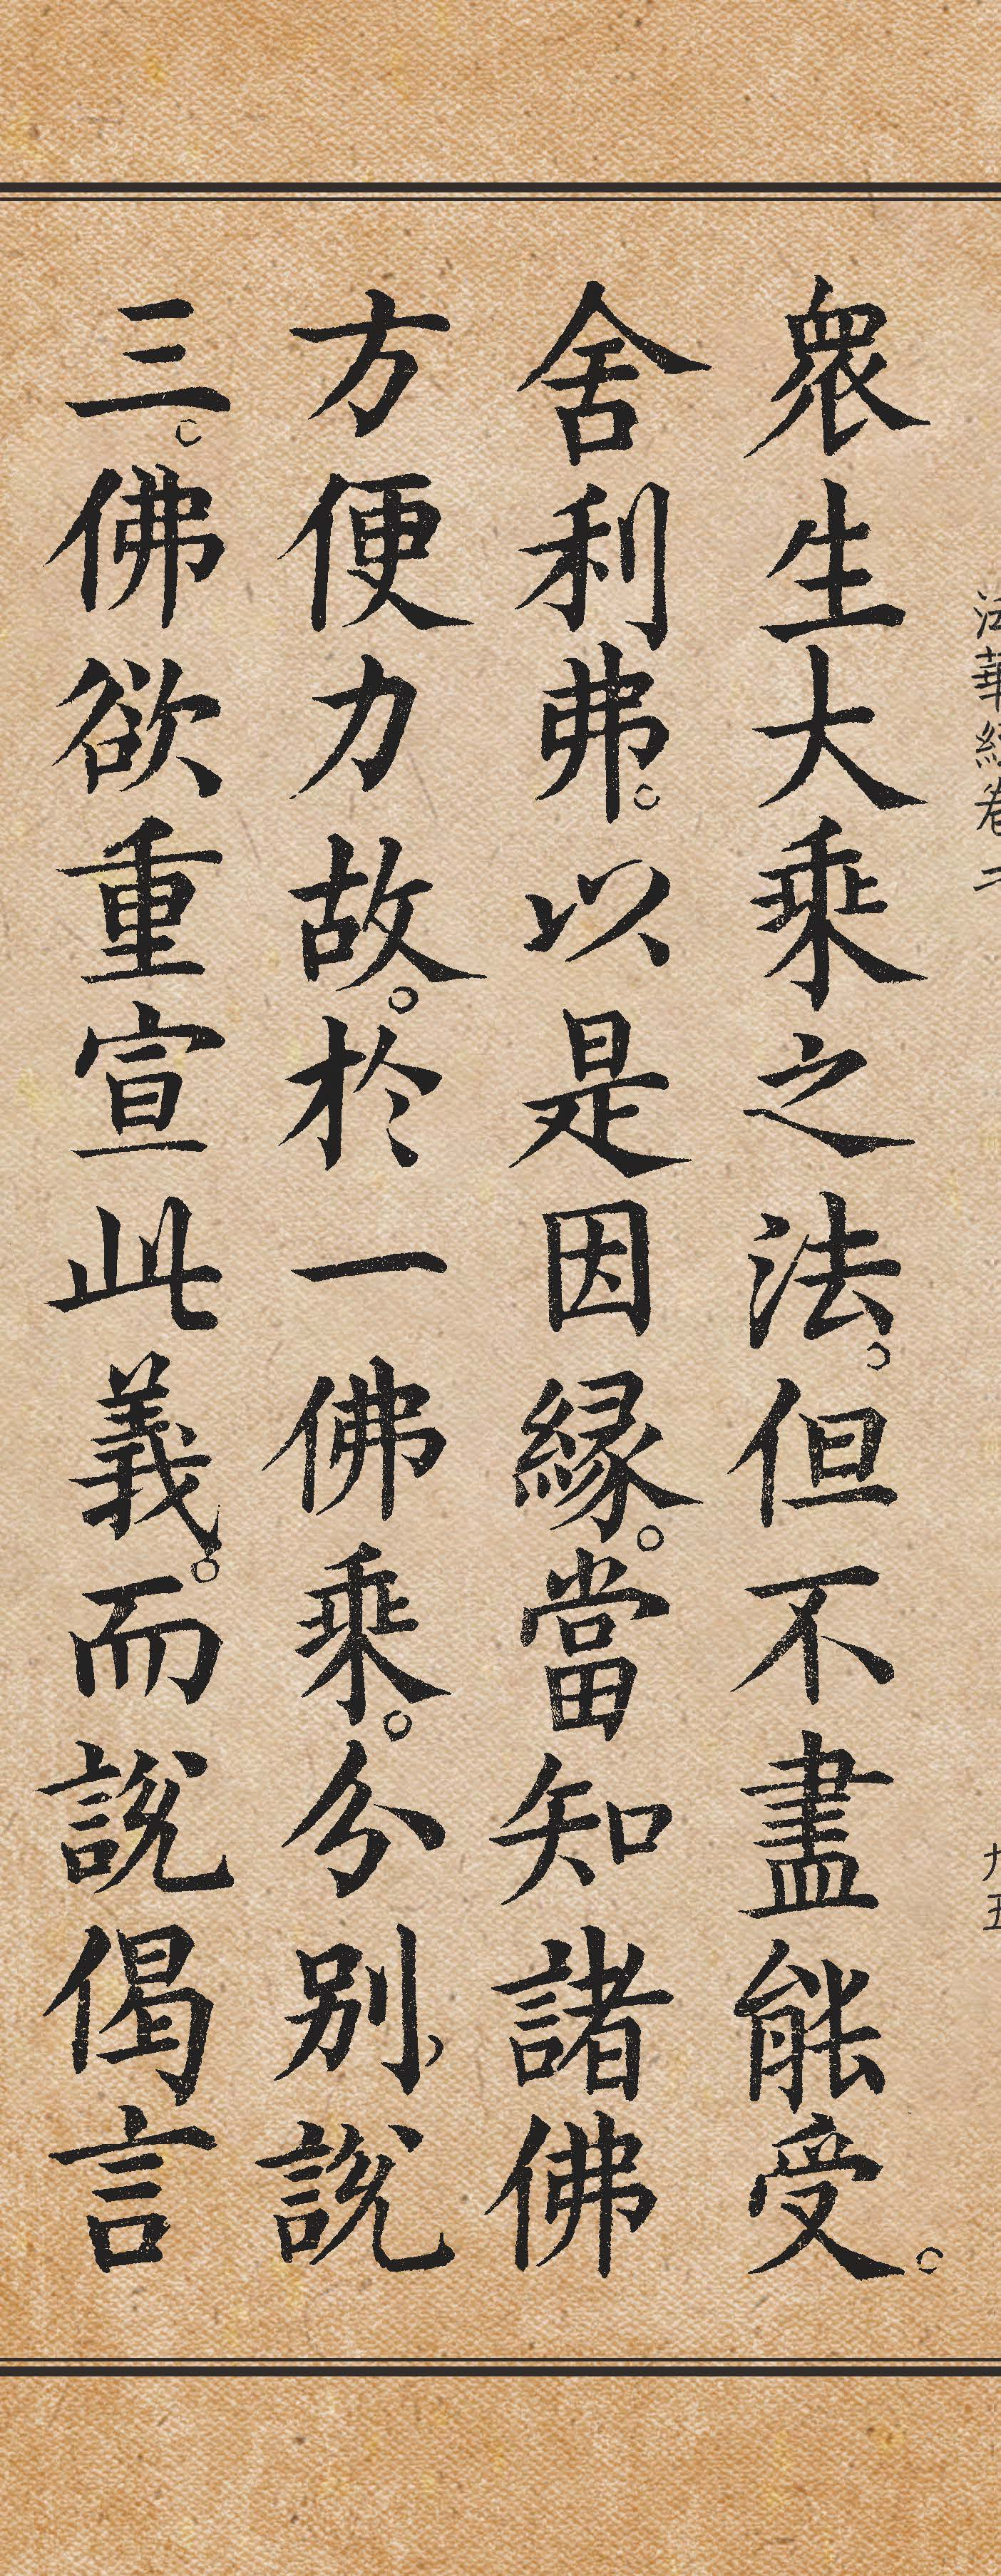 法華經卷二 九五
眾生大乘之法。但不盡能受。
舍利弗。以是因緣。當知諸佛
方便力故。於一佛乘。分別說
三。佛欲重宣此義。而說偈言